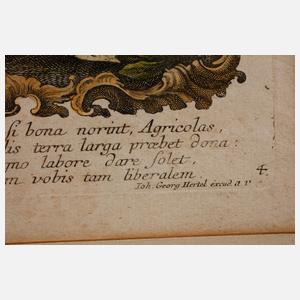 si bona norint, Agricolas,
lis terra larga præbet dona:
mo labore dare solet,
m vobis tam liberalem. 4.
Joh. Georg Hertel excud. a. v